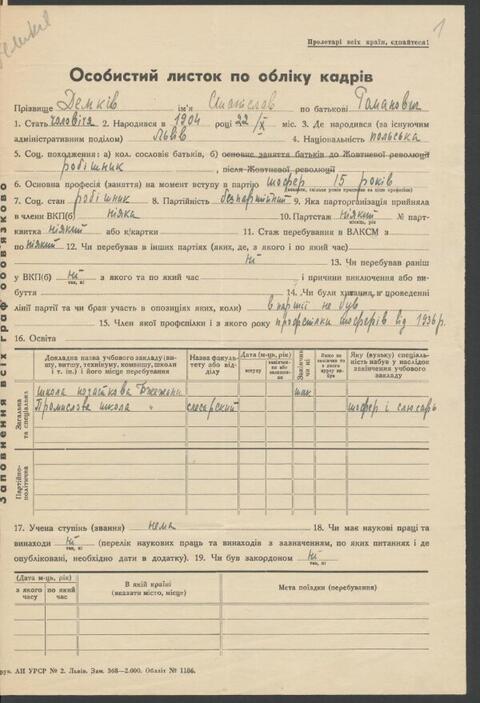 1
Пролетарі всіх країн, єднайтеся!
Особистий листок по обліку кадрів
Прізвище Демків ім'я Станіслав по батькові Романович
1. Стать чоловіча 2. Народився в 1904 році 22/X міс. 3. Де народився (за існуючим
адміністративним поділом) Львів 4. Національність польська
5. Соц. походження: а) кол. сословів батьків, б) основне заняття батьків до Жовтневої революції
робітник після Жовтневої революції
6. Основна професія (заняття) на момент вступу в партію шофер 15 років
7. Соц. стан робітник 8. Партійність безпартійний 9. Яка парторганізація прийняла
в члени ВКП(б) ніяка 10. Партстаж ніякий № парт-
квитка ніякий або к/картки 11. Стаж перебування в ВЛКСМ з
по ніякий 12. Чи перебував в інших партіях (яких, де, з якого і по який час)
Ні 13. Чи перебував раніш
у ВКП(б) Ні з якого та по який час і причини виключення або ви-
так, ні
буття 14. Чи були хитання в проведенні
лінії партії та чи брав участь в опозиціях яких, коли) в партії не був
15. Член якої профспілки і з якого року профспілки шоферів від 1936 р.
16. Освіта
Докладна назва учбового закладу (ви-
шу, витшу, технікуму, комвишу, школи
і т. ін.) і його місце перебування
Назва факуль-
тету або від-
ділу
Дата (м-ць, рік)
вступу
Закінчив
чи ні
Яку (вузьку) спеціаль-
ність набув в наслідок
закінчення учбового
закладу
Загальна
та спеціальна
школа початкова Бжежани так
Промислова школа " слюсарський шофер і слюсарь
Партійно-
політична
17. Учена ступінь (звання) нема 18. Чи має наукові праці та
винаходи ні (перелік наукових праць та винаходів з зазначенням, по яких питаннях і де
так, ні
опубліковані, необхідно дати в додатку). 19. Чи був закордоном ні
так, ні
(Дата м-ць, рік)
з якого
часу
по який
час
В якій країні
(вказати місто, місце)
Мета поїздки (перебування)
Заповнення всіх граф обов'язково
рук. АН УРСР № 2. Львів. Зам. 368—2.000. Обліліт № 1186.